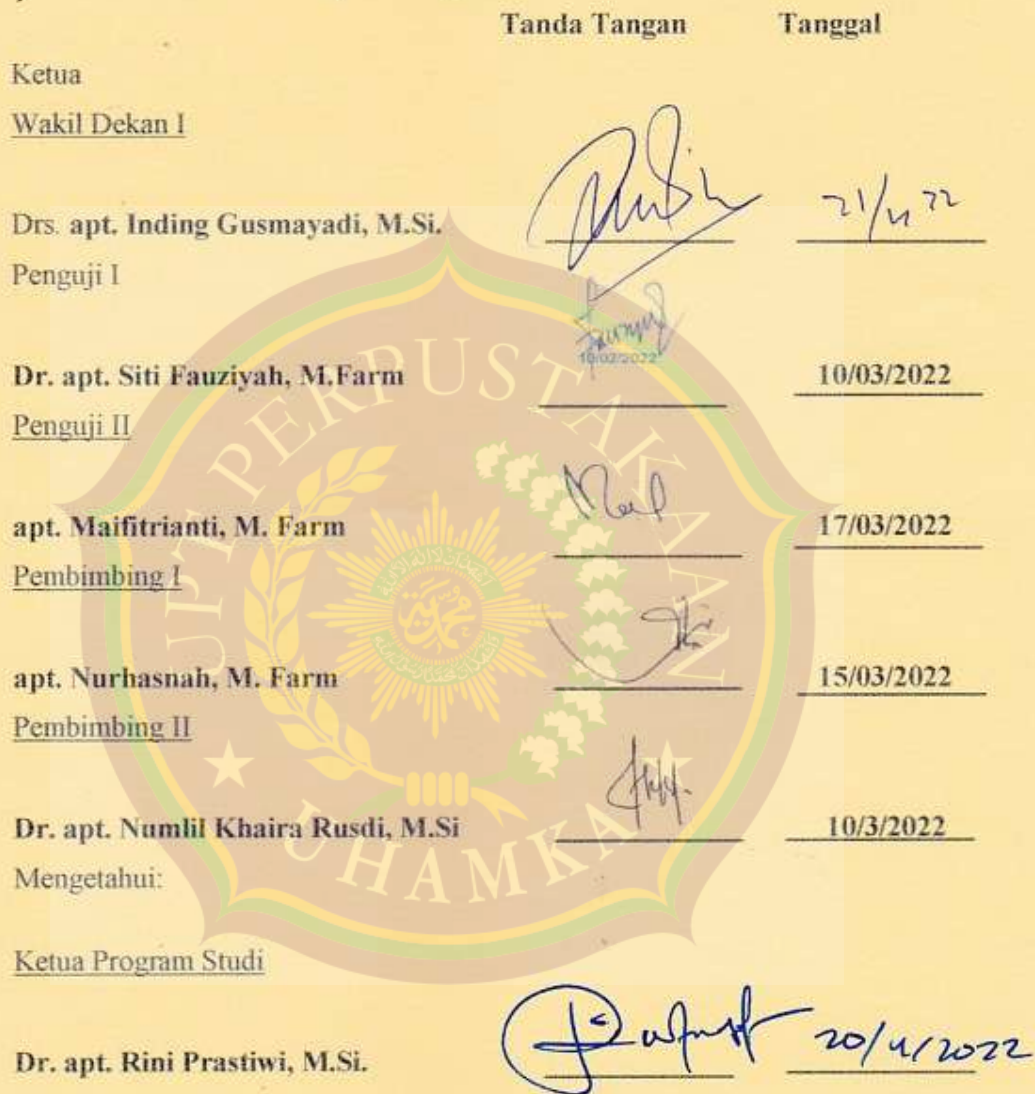 Tanda Tangan Tanggal
Ketua
Wakil Dekan I
Drs. apt. Inding Gusmayadi, M.Si. 21/4 22
Penguji I
10/02/2022
Dr. apt. Siti Fauziyah, M.Farm 10/03/2022
Penguji II
apt. Maifitrianti, M. Farm 17/03/2022
Pembimbing I
apt. Nurhasnah, M. Farm 15/03/2022
Pembimbing II
Dr. apt. Numlil Khaira Rusdi, M.Si 10/3/2022
Mengetahui:
Ketua Program Studi
Dr. apt. Rini Prastiwi, M.Si. 20/4/2022
UPT PERPUSTAKAAN
UHAMKA